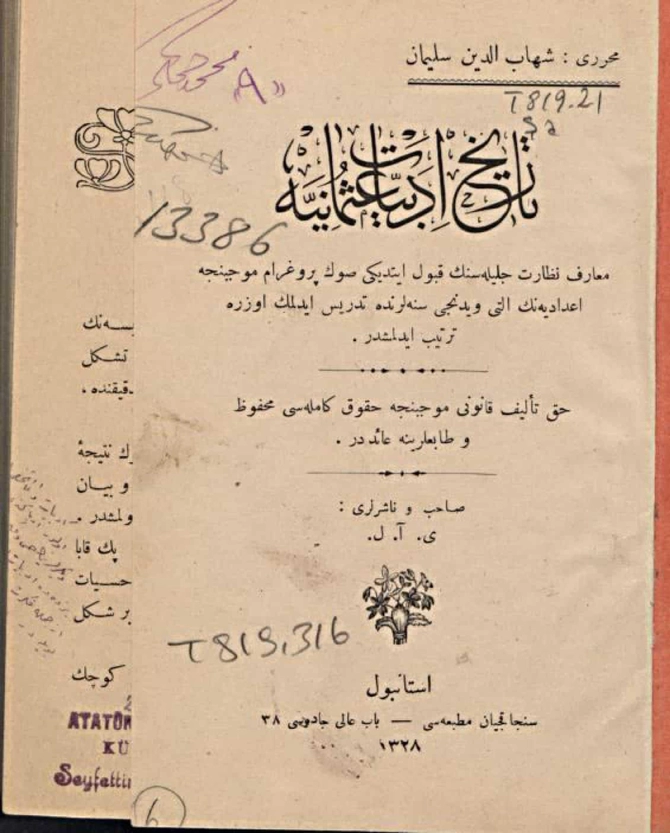 محرری : شهاب الدین سلیمان
T819.21
تاریخ ادبیات عثمانیه
13386
معارف نظارت جلیله‌سنك قبول ایتدیكی صوك پروغرام موجبنجه
اعدادیه‌نك التی ویدنجی سنه‌لرنده تدریس ایدلمك اوزره
ترتیب ایدلمشدر .
حق تألیف قانونی موجبنجه حقوق كامله‌سی محفوظ
و طابعلرینه عائددر .
صاحب و ناشرلری :
ی. آ. ل.
T819,316
استانبول
سنجاقجیان مطبعه‌سی — باب عالی جاده‌سی ٣٨
١٣٢٨
6
تشكل
دقیقنده ،
نتیجۀ
و بیان
ولمشدر
پك قابا
حسیات
بر شكل
كوچك
ATATÜR
KÜ
Seyfetti